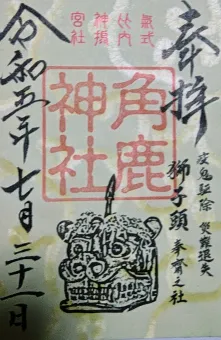 奉拝
疫鬼駆除 災難退失
獅子頭 奉斎之社
式内攝社
氣比神宮
角鹿
神社
令和五年七月三十一日